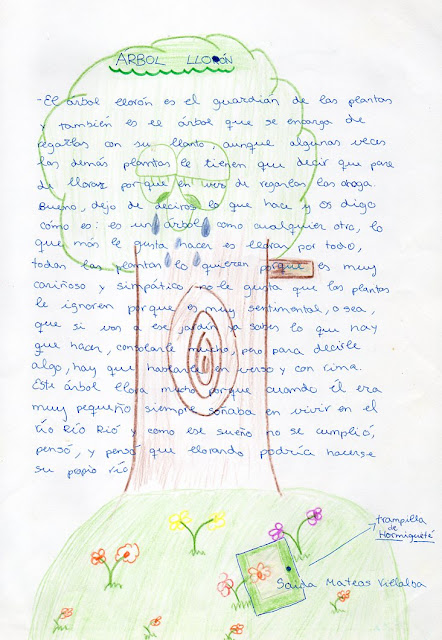 ARBOL LLORÓN
-El árbol llorón es el guardián de las plantas
y también es el árbol que se encarga de
regarlas con su llanto, aunque algunas veces
las demás plantas le tienen que decir que pare
de llorar porque en vez de regarlas las ahoga.
Bueno, dejo de deciros lo que hace y os digo
cómo es: es un árbol como cualquier otro, lo
que más le gusta hacer es llorar por todo,
todas las plantas lo quieren porque es muy
cariñoso y simpático no le gusta que las plantas
le ignoren porque es muy sentimental, o sea,
que si vas a ese jardín ya sabes lo que hay
que hacer, consolarle mucho, pero para decirle
algo, hay que hablarle en verso y con rima.
Este árbol llora mucho porque cuando él era
muy pequeño siempre soñaba en vivir en el
río Río Rió y como ese sueño no se cumplió,
pensó, y pensó que llorando podría hacerse
su propio río
trampilla
de
Hormigueté
Saida Mateos Villalba